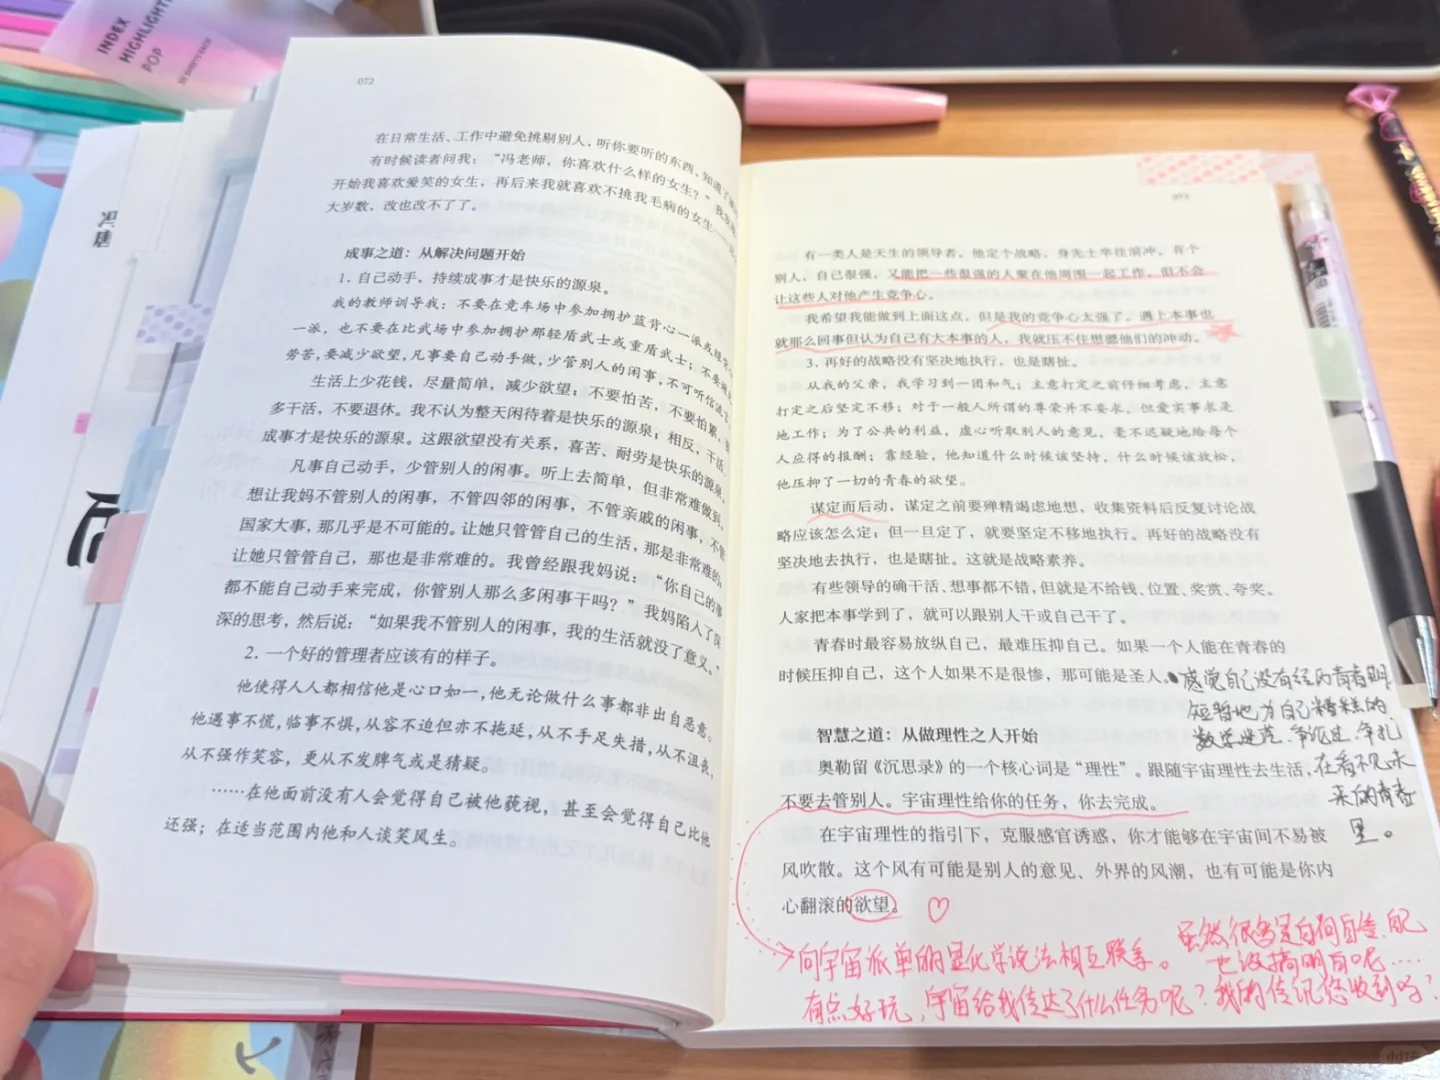 INDEX
HIGHLIGHT
POP
072
在日常生活、工作中避免挑剔别人，听你要听的东西，知道了就
有时候读者问我：“冯老师，你喜欢什么样的女生？”我
开始我喜欢爱笑的女生，再后来我就喜欢不挑我毛病的女生——
大岁数，改也改不了了。
成事之道：从解决问题开始
1. 自己动手，持续成事才是快乐的源泉。
我的教师训导我：不要在竞车场中参加拥护蓝背心一派或绿背心
一派，也不要在比武场中参加拥护那轻盾武士或重盾武士；不要
劳苦，要减少欲望，凡事要自己动手做，少管别人的闲事，不可听信流言
生活上少花钱，尽量简单，减少欲望；不要怕苦，不要怕累，要
多干活，不要退休。我不认为整天闲待着是快乐的源泉；相反，干活、
成事才是快乐的源泉。这跟欲望没有关系，喜苦、耐劳是快乐的源泉。
凡事自己动手，少管别人的闲事。听上去简单，但非常难做到，
想让我妈不管别人的闲事，不管四邻的闲事，不管亲戚的闲事，不管
国家大事，那几乎是不可能的。让她只管管自己的生活，那是非常难的。
让她只管管自己，那也是非常难的。我曾经跟我妈说：“你自己的事
都不能自己动手来完成，你管别人那么多闲事干吗？”我妈陷入了深
深的思考，然后说：“如果我不管别人的闲事，我的生活就没了意义。”
2. 一个好的管理者应该有的样子。
他使得人人都相信他是心口如一，他无论做什么事都非出自恶意。
他遇事不慌，临事不惧，从容不迫但亦不拖延，从不手足失措，从不沮丧，
从不强作笑容，更从不发脾气或是猜疑。
……在他面前没有人会觉得自己被他藐视，甚至会觉得自己比他
还强；在适当范围内他和人谈笑风生。
073
有一类人是天生的领导者。他定个战略，身先士卒往前冲。有个
别人，自己很强，又能把一些很强的人聚在他周围一起工作，但不会
让这些人对他产生竞争心。
我希望我能做到上面这点，但是我的竞争心太强了，遇上本事也
就那么回事但认为自己有大本事的人，我就压不住想㨃他们的冲动。
3. 再好的战略没有坚决地执行，也是瞎扯。
从我的父亲，我学习到一团和气；主意打定之前仔细考虑，主意
打定之后坚定不移；对于一般人所谓的尊荣并不妄求，但爱实事求是
地工作；为了公共的利益，虚心听取别人的意见，毫不迟疑地给每个
人应得的报酬；靠经验，他知道什么时候该坚持，什么时候该放松，
他压抑了一切的青春的欲望。
谋定而后动，谋定之前要殚精竭虑地想、收集资料后反复讨论战
略应该怎么定；但一旦定了，就要坚定不移地执行。再好的战略没有
坚决地去执行，也是瞎扯。这就是战略素养。
有些领导的确干活、想事都不错，但就是不给钱、位置、奖赏、夸奖。
人家把本事学到了，就可以跟别人干或自己干了。
青春时最容易放纵自己，最难压抑自己。如果一个人能在青春的
时候压抑自己，这个人如果不是很惨，那可能是圣人。
感觉自己没有经历青春期
短暂地为自己糟糕的
数学迷茫、争论过、争扎
在看不见未
来的青春
里。
智慧之道：从做理性之人开始
奥勒留《沉思录》的一个核心词是“理性”。跟随宇宙理性去生活，
不要去管别人。宇宙理性给你的任务，你去完成。
在宇宙理性的指引下，克服感官诱惑，你才能够在宇宙间不易被
风吹散。这个风有可能是别人的意见、外界的风潮，也有可能是你内
心翻滚的欲望。
向宇宙派单的显化学说法相互联系。
有点好玩，宇宙给我传达了什么任务呢？我的传讯您收到吗？
虽然很多是自问自答，
也没搞明白呢……